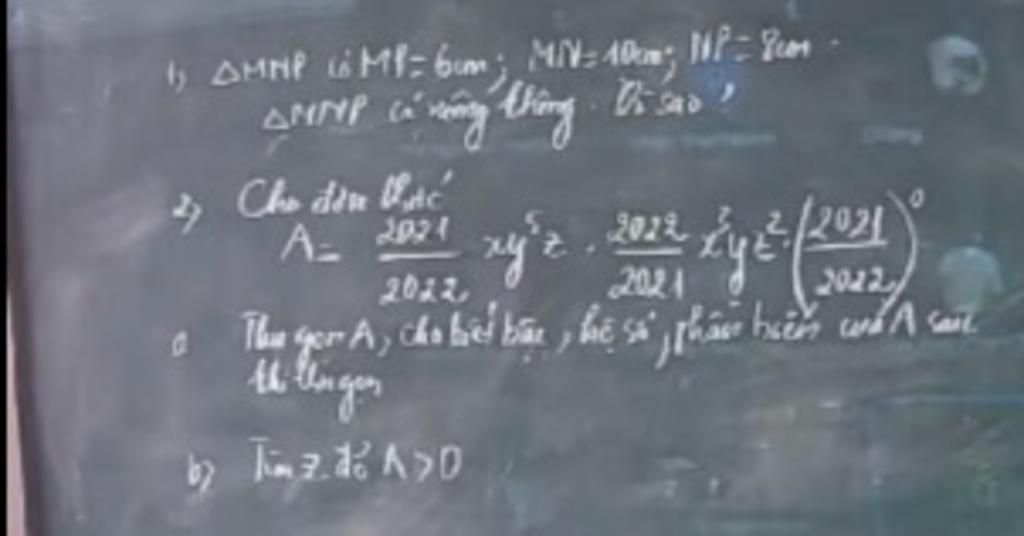 1, △MNP có MP = 6cm; MN = 10cm; NP = 8cm.
△MNP có vuông không. Vì sao?
2, Cho đơn thức
A = 2021/2022 xy⁵z . 2022/2021 x³yz² . (2021/2022)⁰
a Thu gọn A, cho biết bậc, hệ số, phần biến của A sau
khi thu gọn
b, Tìm z để A > 0